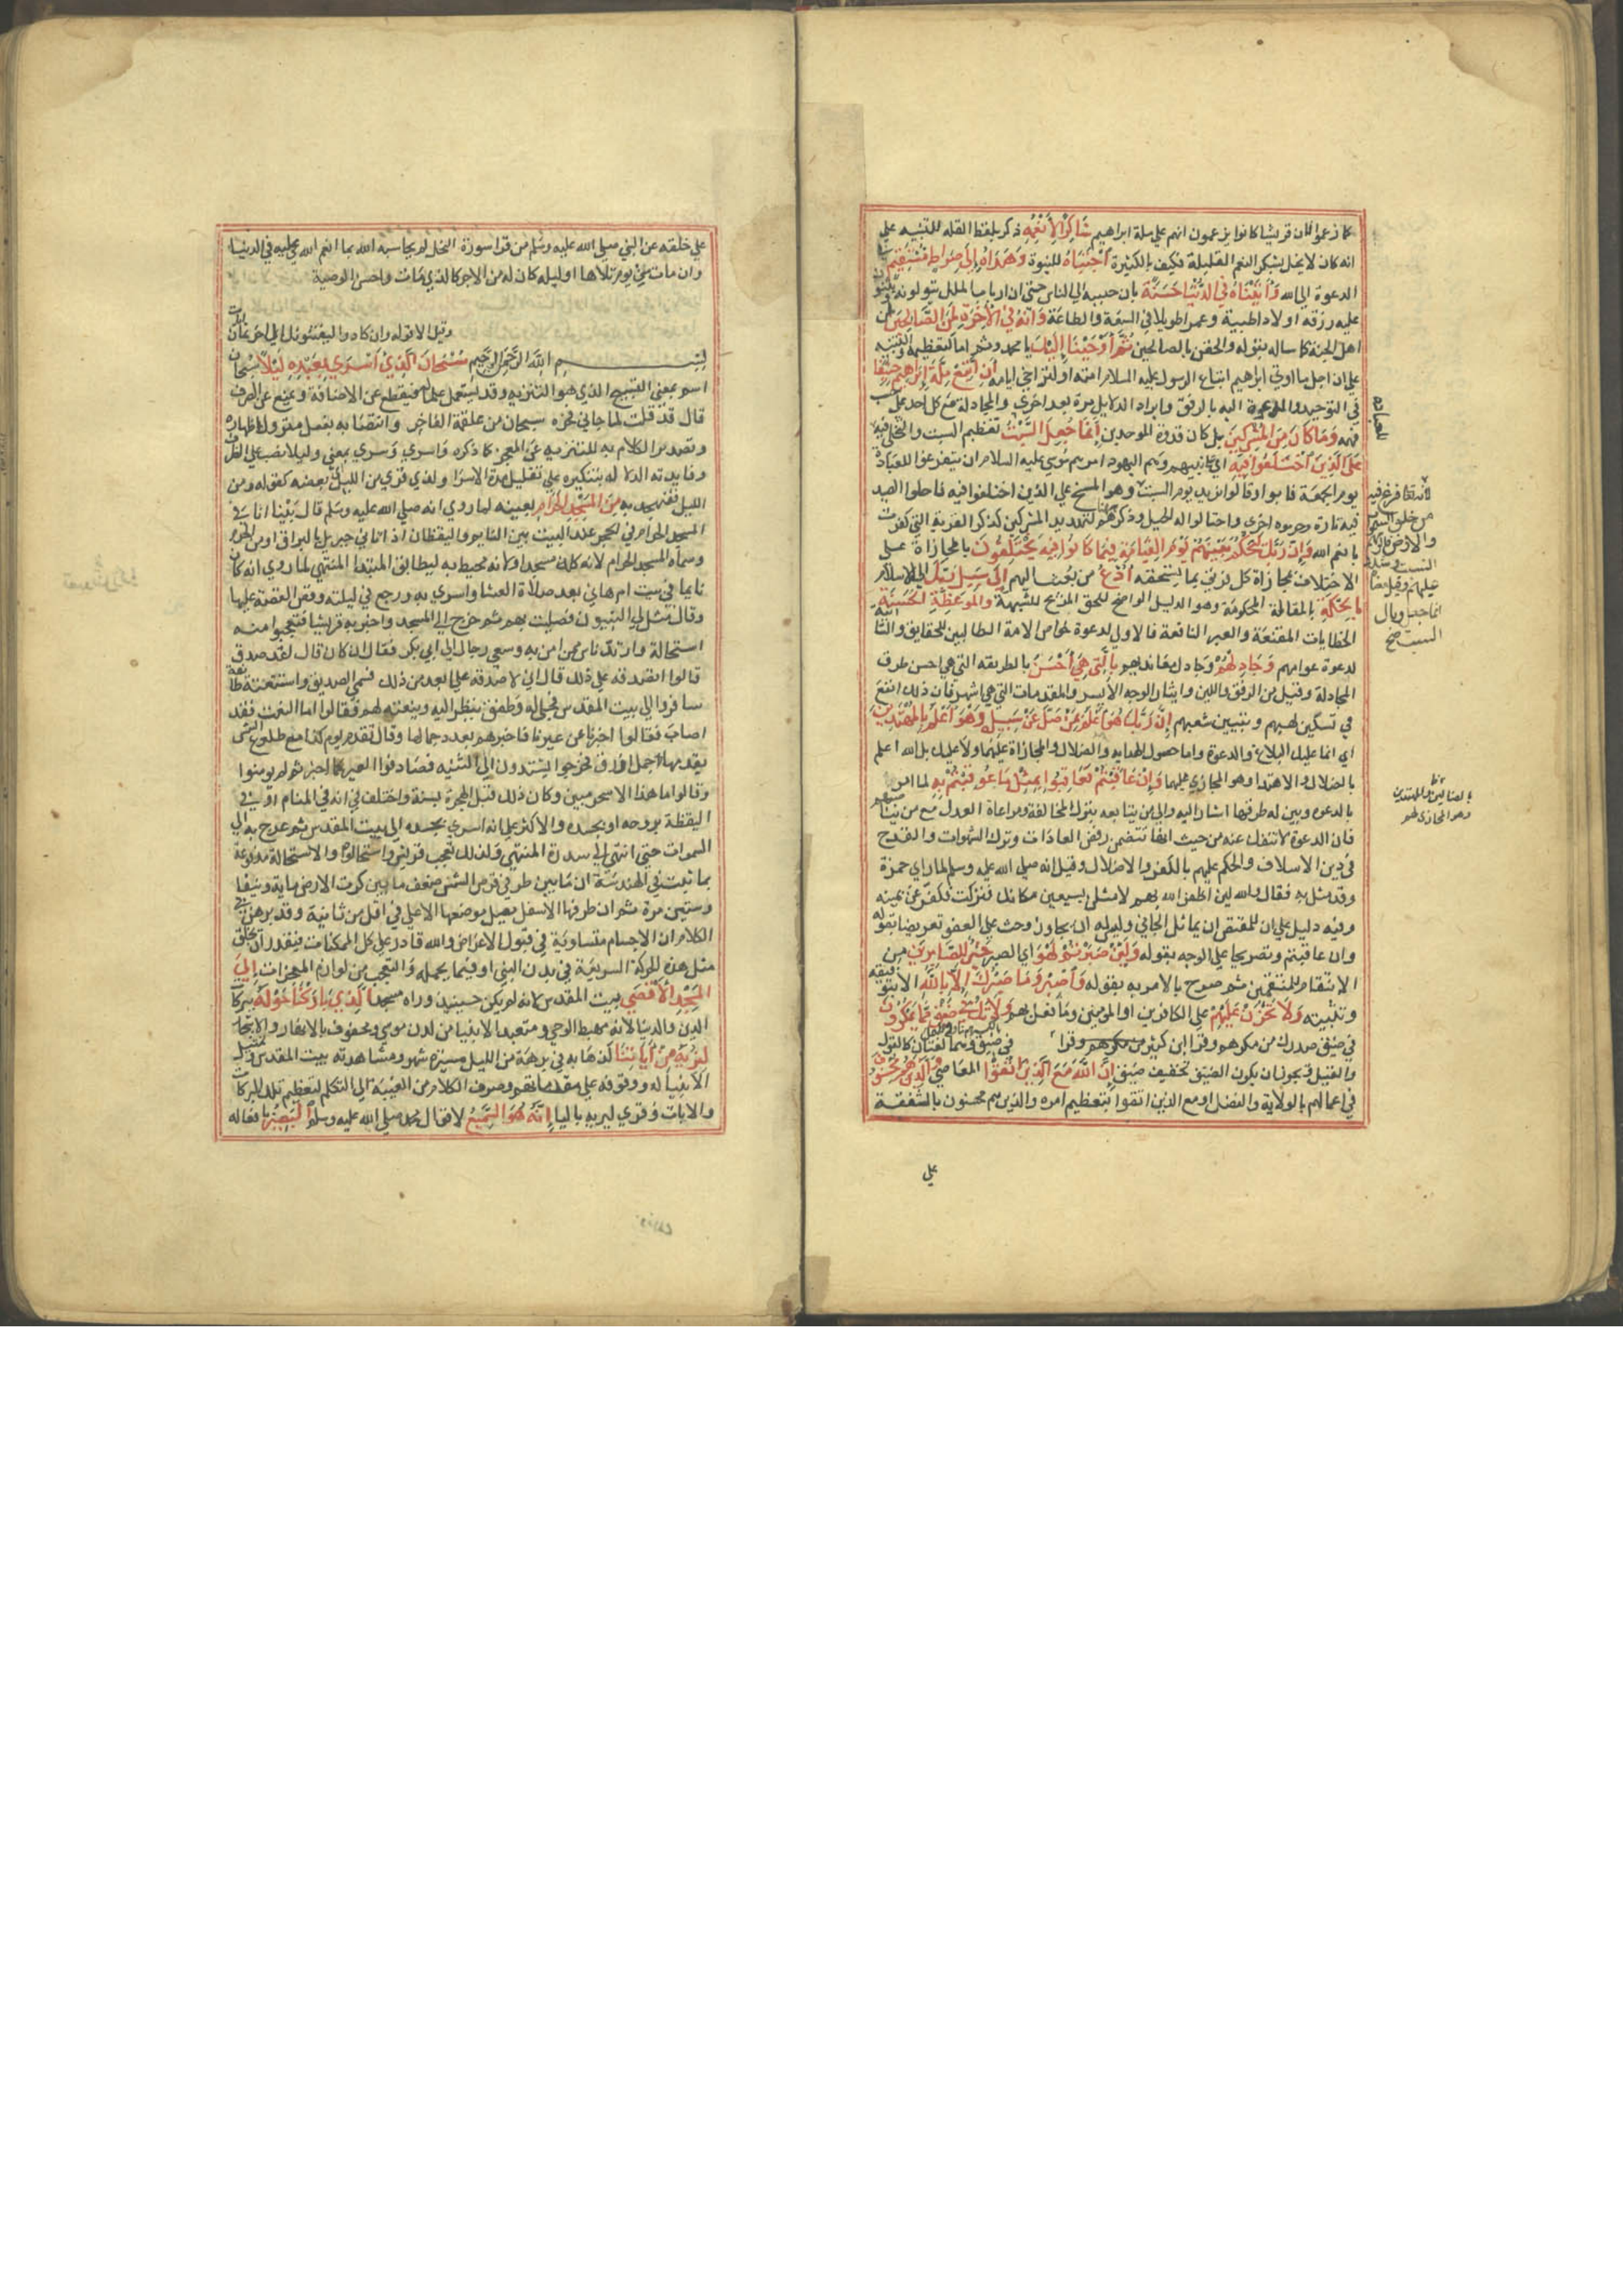 كما زعموا فان قريشا كانوا يزعمون انهم على ملة ابراهيم شَاكِرًا لِأَنْعُمِهِ ذكر بلفظ القلة للتنبيه على
انه كان لا يخل بشكر النعم القليلة فكيف بالكثيرة اجْتَبَاهُ للنبوة وَهَدَاهُ إِلَى صِرَاطٍ مُسْتَقِيمٍ في
الدعوة الى الله وَآتَيْنَاهُ فِي الدُّنْيَا حَسَنَةً بان حببه الى الناس حتى ان ارباب الملل يتولونه ويثنون
عليه ورزقه اولادا طيبة وعمرا طويلا في السعة والطاعة وَإِنَّهُ فِي الْآخِرَةِ لَمِنَ الصَّالِحِينَ لمن
اهل الجنة كما ساله بقوله والحقني بالصالحين ثُمَّ أَوْحَيْنَا إِلَيْكَ يا محمد وثم اما لتعظيمه والتنبيه
على ان اجل ما اوتي ابرهيم اتباع الرسول عليه السلام ملته او لتراخي ايامه أَنِ اتَّبِعْ مِلَّةَ إِبْرَاهِيمَ حَنِيفًا
في التوحيد والدعوة اليه بالرفق وايراد الدلايل مرة بعد اخرى والمجادلة مع كل احد على حسب
فهمه وَمَا كَانَ مِنَ الْمُشْرِكِينَ بل كان قدوة الموحدين إِنَّمَا جُعِلَ السَّبْتُ تعظيم السبت والتخلي فيه
عَلَى الَّذِينَ اخْتَلَفُوا فِيهِ اي على نبيهم وهم اليهود امرهم موسى عليه السلام ان يتفرغوا للعبادة
يوم الجمعة فابوا وقالوا نريد يوم السبت وهو المسخ على الذين اختلفوا فيه فاحلوا الصيد
فيه تارة وحرموه اخرى واحتالوا له الحيل وذكرهم هنا لتهديد المشركين كذكر القرية التي كفرت
بانعم الله وَإِنَّ رَبَّكَ لَيَحْكُمُ بَيْنَهُمْ يَوْمَ الْقِيَامَةِ فِيمَا كَانُوا فِيهِ يَخْتَلِفُونَ بالمجازاة على
الاختلاف بمجازاة كل فريق بما يستحقه ادْعُ من بعثت اليهم إِلَى سَبِيلِ رَبِّكَ الى الاسلام
بِالْحِكْمَةِ بالمقالة المحكومة وهو الدليل الواضح للحق المزيح للشبهة وَالْمَوْعِظَةِ الْحَسَنَةِ
الخطابات المقنعة والعبر النافعة فالاولى لدعوة خواص الامة الطالبين للحقايق والثانية
لدعوة عوامهم وَجَادِلْهُمْ وجادل معانديهم بِالَّتِي هِيَ أَحْسَنُ بالطريقه التي هي احسن طرق
المجادلة وقيل من الرفق واللين وايثار الوجه الأيسر والمقدمات التي هي اشهر فان ذلك انفع
في تسكين لهبهم وتبيين شغبهم إِنَّ رَبَّكَ هُوَ أَعْلَمُ بِمَنْ ضَلَّ عَنْ سَبِيلِهِ وَهُوَ أَعْلَمُ بِالْمُهْتَدِينَ
اي انما عليك البلاغ والدعوة واما حصول الهداية والضلال والمجازاة عليهما ولا عليك بل الله اعلم
بالضلال والاهتداء وهو المجازي عليهما وَإِنْ عَاقَبْتُمْ فَعَاقِبُوا بِمِثْلِ مَا عُوقِبْتُمْ بِهِ لما امره
بالدعوة وبين له طرقها اشار اليه والى من يتابعه بترك المخالفة ومراعاة العدل مع من يناصبهم
فان الدعوة لا تنفك عنه من حيث انها تتضمن رفض العادات وترك الشهوات والقدح
في دين الاسلاف والحكم عليهم بالكفر والاضلال وقيل انه صلى الله عليه وسلم لما راى حمزة
وقد مثل به فقال والله لين اظفرني الله بهم لامثلن بسبعين مكانك فنزلت فكفر عن يمينه
وفيه دليل على ان للمقتص ان يماثل الجاني وليس له ان يجاوزه وحث على العفو تعريضا بقوله
وان عاقبتم وتصريحا على الوجه بقوله وَلَئِنْ صَبَرْتُمْ لَهُوَ اي الصبر خَيْرٌ لِلصَّابِرِينَ من
الانتقام للمنتقمين ثم صرح بالامر به بقوله وَاصْبِرْ وَمَا صَبْرُكَ إِلَّا بِاللَّهِ الا بتوفيقه
وتثبيته وَلَا تَحْزَنْ عَلَيْهِمْ على الكافرين او المومنين وما فعل بهم وَلَا تَكُ فِي ضَيْقٍ مِمَّا يَمْكُرُونَ
في ضيق صدرك من مكرهم وقرا ابن كثير في ضيق وهما لغتان كالقول
والقيل ويجوز ان يكون الضيق تخفيف ضيق إِنَّ اللَّهَ مَعَ الَّذِينَ اتَّقَوْا المعاصي وَالَّذِينَ هُمْ مُحْسِنُونَ
في اعمالهم بالولاية والفضل او مع الذين اتقوا بتعظيم امره والذين هم محسنون بالشفقة
على
لانه تعا فرغ فيه
من خلق السموات
والارض
انما جعل وبال
السبت
وهو المجازى لهم
على خلقه عن النبي صلى الله عليه وسلم من قرا سورة النحل لم يحاسبه الله بما انعم الله عليه في الدنيا
وان مات في يوم تلاها او ليله كان له من الاجر كالذي مات واحسن الوصية
وقيل الا قوله وان كادوا ليفتنونك الى اخر ثمان ايات
بِسْمِ اللَّهِ الرَّحْمَنِ الرَّحِيمِ سُبْحَانَ الَّذِي أَسْرَى بِعَبْدِهِ لَيْلًا سبحان
اسم بمعنى التسبيح الذي هو التنزيه وقد يستعمل علما له فيقطع عن الاضافة ويمنع عن الصرف
قال قد قلت لما جاني فخره سبحان من علقمة الفاخر وانتصابه بفعل متروك اظهاره
وتصدير الكلام به للتنزيه عن العجز كما ذكره واسرى وسرى بمعنى وليلا نصب على الظرف
وفايدته الدلالة بتنكيره على تقليل مدة الاسرا ولذي قري من الليل اي بعضه كقوله ومن
الليل فتهجد به مِنَ الْمَسْجِدِ الْحَرَامِ بعينه لما روي انه صلى الله عليه وسلم قال بينا انا في
المسجد الحرام في الحجر عند البيت بين النايم واليقظان اذ اتاني جبريل بالبراق او من الحرم
وسماه المسجد الحرام لانه كله مسجد او لانه محيط به ليطابق المبتدا المنتهي لما روي انه كان
نايما في بيت ام هاني بعد صلاة العشا واسري به ورجع في ليلته وقص القصة عليها
وقال مثل لي النبيون فصليت بهم ثم خرج الى المسجد واخبر به قريشا فتعجبوا منه
استحالة وارتد ناس ممن امن به وسعى رجال الى ابي بكر فقال ان كان قال لقد صدق
قالوا اتصدقه على ذلك قال اني لاصدقه على ابعد من ذلك فسمي الصديق واستنعته طايفة
سافروا الى بيت المقدس فجلي له وطفق ينظر اليه وينعته لهم فقالوا اما النعت فقد
اصاب فقالوا اخبرنا عن عيرنا فاخبرهم بعدد جمالها وقال تقدم يوم كذا مع طلوع الشمس
يقدمها جمل اورق فخرجوا يشتدون الى الثنية فصادفوا العير كما اخبر ثم لم يومنوا
وقالوا ما هذا الا سحر مبين وكان ذلك قبل الهجرة بسنة واختلف في انه في المنام او في
اليقظة بروحه او بجسده والاكثر على انه اسري بجسده الى بيت المقدس ثم عرج به الى
السموات حتى انتهى الى سدرة المنتهى ولذلك تعجب قريش واستحالوه والاستحالة مدفوعة
بما ثبت في الهندسة ان ما بين طرفي قرص الشمس ضعف ما بين كرت الارض ماية ونيفا
وستين مرة ثم ان طرفها الاسفل يصل موضعها الاعلى في اقل من ثانية وقد برهن في
الكلام ان الاجسام متساوية في قبول الاعراض والله قادر على كل الممكنات فيقدر ان يخلق
مثل هذه الحركة السريعة في بدن النبي او فيما يحمله والتعجب من لوازم المعجزات إِلَى
الْمَسْجِدِ الْأَقْصَى بيت المقدس لانه لم يكن حينيذ وراه مسجد الَّذِي بَارَكْنَا حَوْلَهُ ببركات
الدين والدنيا لانه مهبط الوحي ومتعبد الانبيا من لدن موسى ومحفوف بالانهار والاشجار
لِنُرِيَهُ مِنْ آيَاتِنَا كذهابه في برهة من الليل مسيرة شهر ومشاهدته بيت المقدس وتمثل
الانبيا له ووقوفه على مقاماتهم وصرف الكلام من الغيبة الى التكلم لتعظيم تلك البركات
والايات وقري ليريه باليا إِنَّهُ هُوَ السَّمِيعُ لاقوال محمد صلى الله عليه وسلم الْبَصِيرُ بافعاله